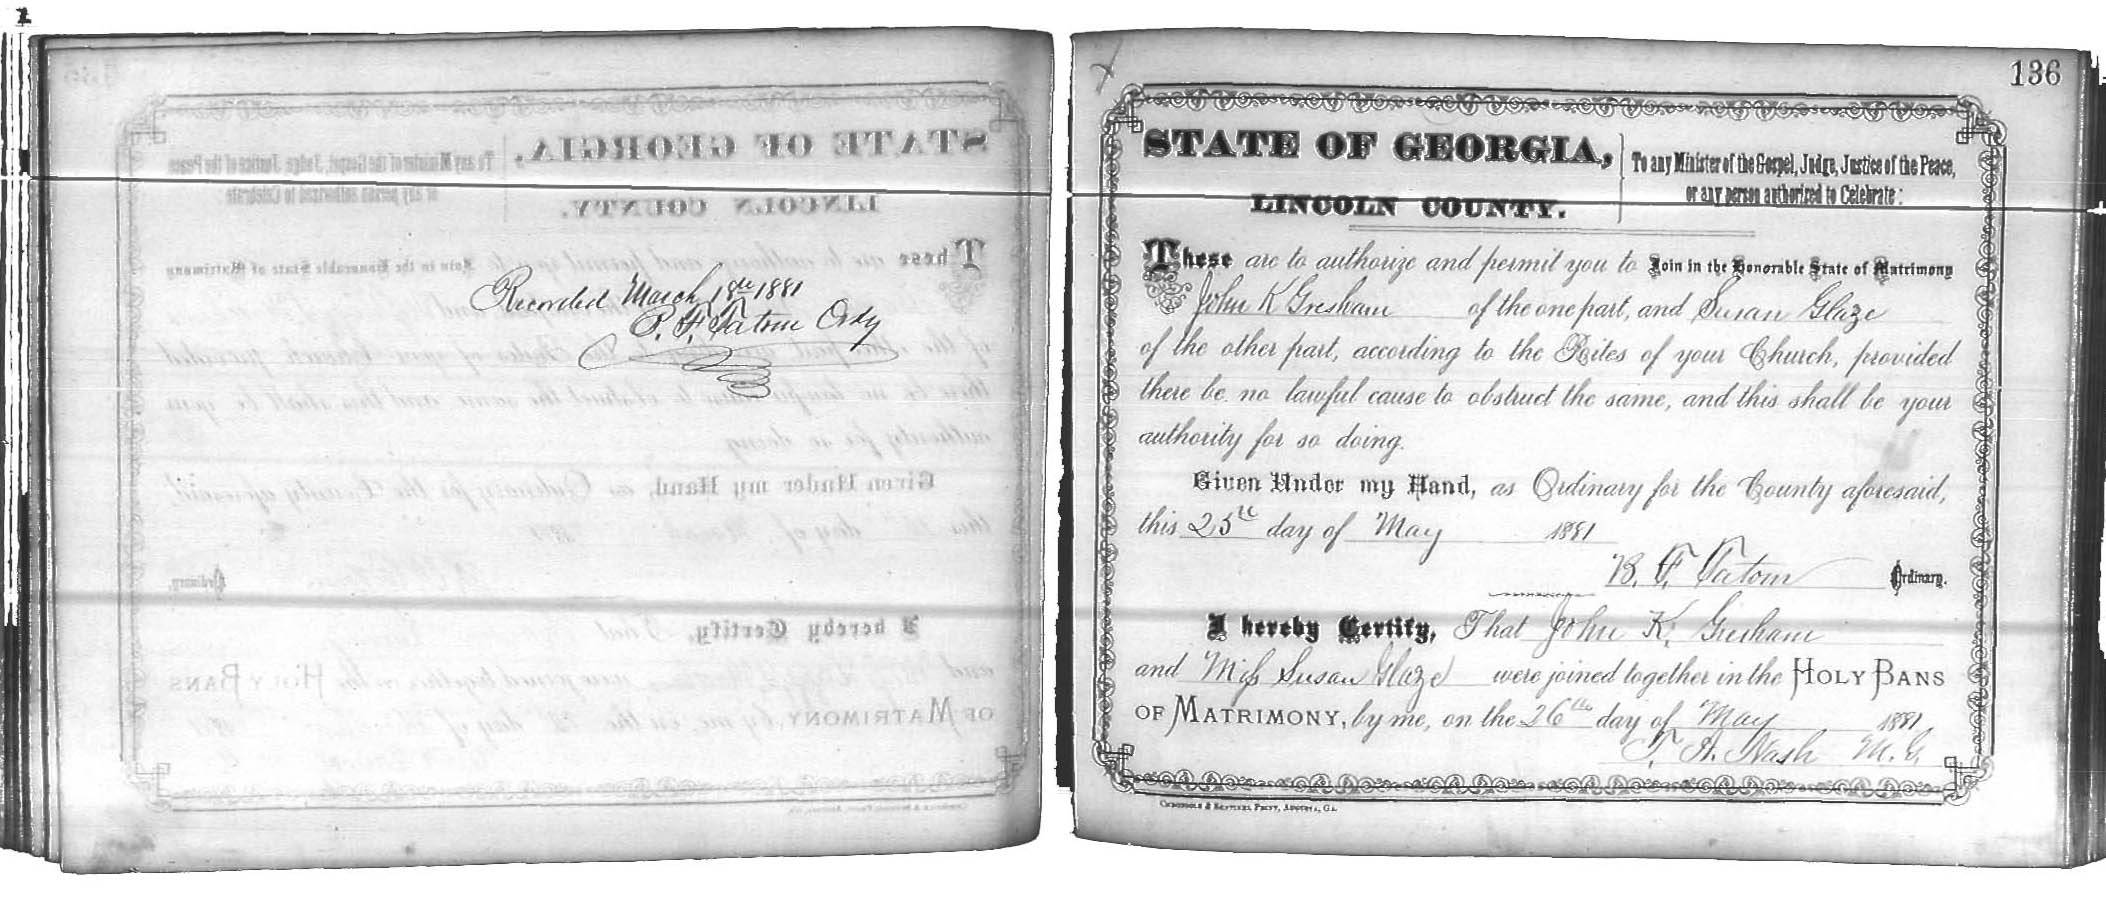 Recorded March 18th 1881
B. F. Tatom Ordy
136
STATE OF GEORGIA,
LINCOLN COUNTY.
To any Minister of the Gospel, Judge, Justice of the Peace,
or any person authorized to Celebrate:
These are to authorize and permit you to Join in the Honorable State of Matrimony
John K Gresham of the one part, and Susan Glaze
of the other part, according to the Rites of your Church, provided
there be no lawful cause to obstruct the same, and this shall be your
authority for so doing.
Given Under my Hand, as Ordinary for the County aforesaid,
this 25th day of May 1881
B. F. Tatom Ordinary.
I hereby Certify, That John K. Gresham
and Miss Susan Glaze were joined together in the HOLY BANS
OF MATRIMONY, by me, on the 26th day of May 1881
T. A. Nash M.G.
CHRONICLE & SENTINEL PRINT, AUGUSTA, GA.